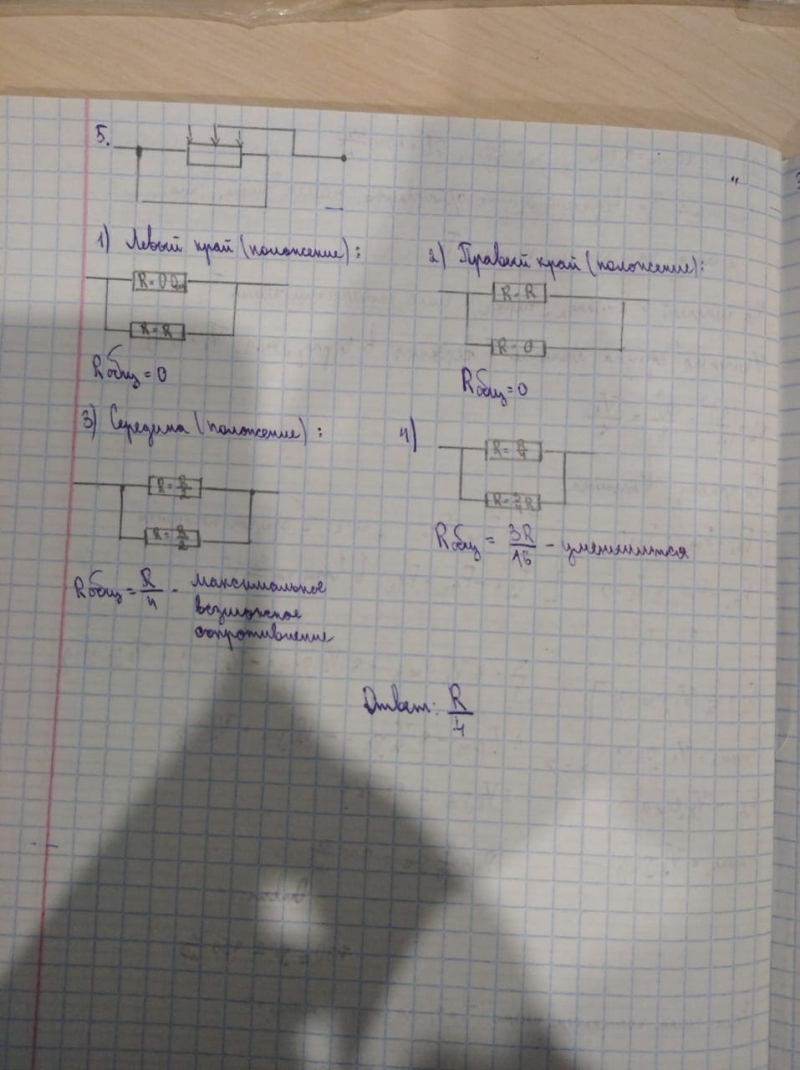 5.
1) Левый край (положение):
R=0 Ом
R=R
Rобщ=0
2) Правый край (положение):
R=R
R=0
Rобщ=0
3) Середина (положение):
R=R/2
R=R/2
Rобщ=R/4 - максимальное
возможное
сопротивление
4)
R=R/4
R=3/4R
Rобщ=3R/16 - уменьшится
Ответ: R/4